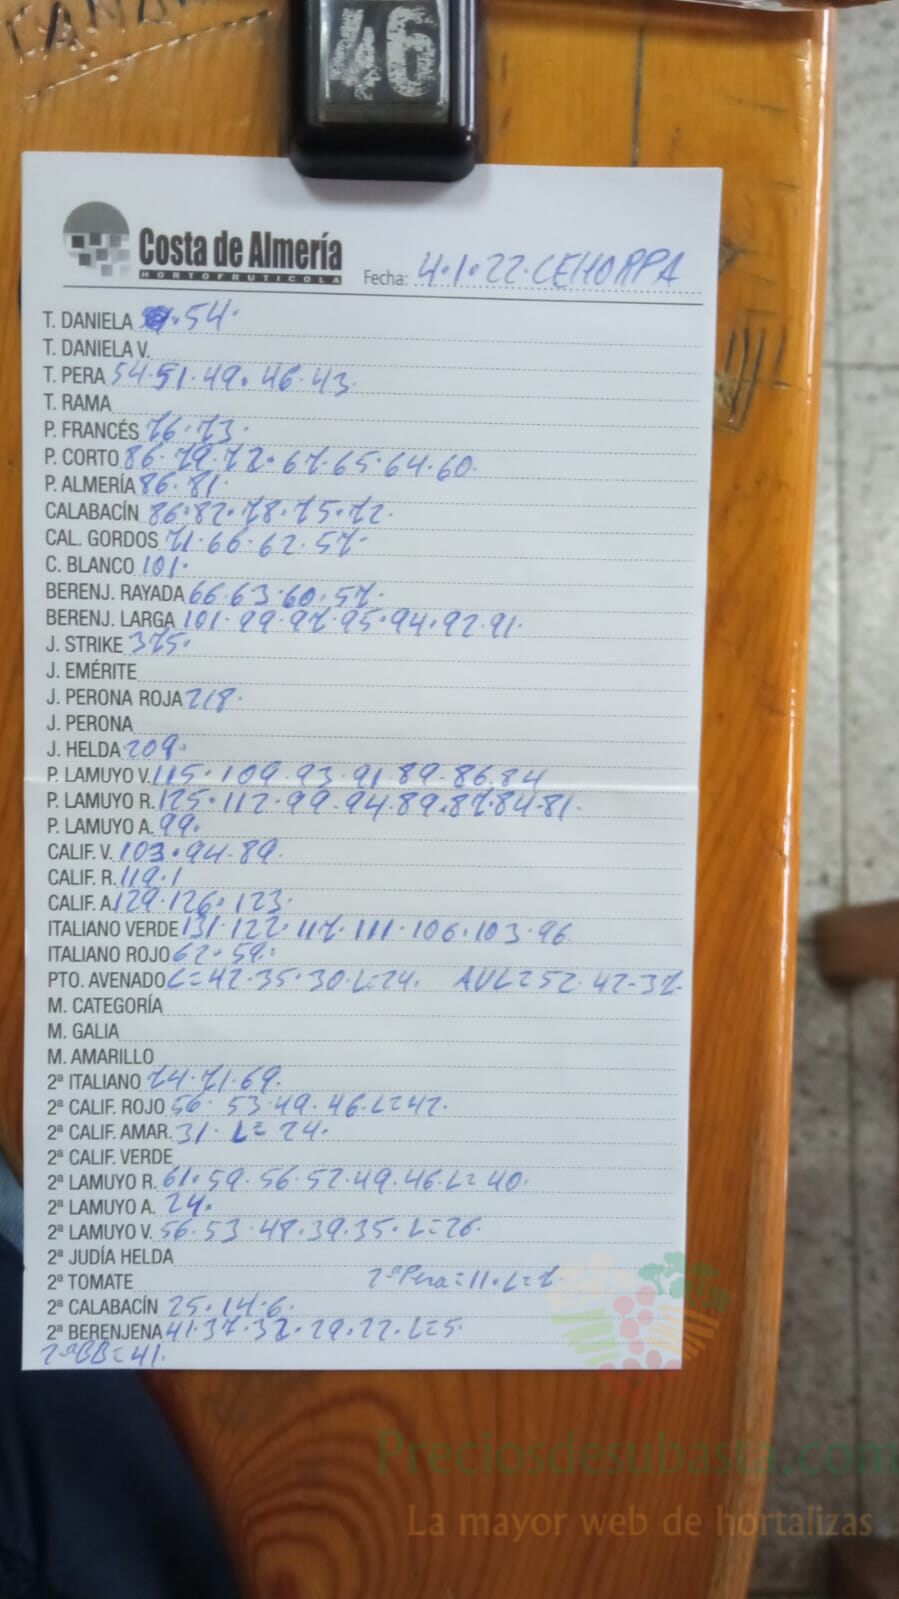 46
Costa de Almería
HORTOFRUTICOLA
Fecha: 4.1.22.CEHORPA
T. DANIELA 54.
T. DANIELA V.
T. PERA 54.51.49.46.43
T. RAMA
P. FRANCÉS 76.73.
P. CORTO 86.79.72.67.65.64.60.
P. ALMERÍA 86.81.
CALABACÍN 86.82.78.75.72.
CAL. GORDOS 71.66.62.57.
C. BLANCO 101.
BERENJ. RAYADA 66.63.60.57.
BERENJ. LARGA 101.99.97.95.94.92.91.
J. STRIKE 375.
J. EMÉRITE
J. PERONA ROJA 218.
J. PERONA
J. HELDA 209.
P. LAMUYO V. 115.109.93.91.89.86.84
P. LAMUYO R. 125.112.99.94.89.87.84.81.
P. LAMUYO A. 99.
CALIF. V. 103.94.89.
CALIF. R. 119.1
CALIF. A. 129.126.123.
ITALIANO VERDE 131.122.117.111.106.103.96
ITALIANO ROJO 62.59.
PTO. AVENADO L=42.35.30.L=24. AVL=52.42-37.
M. CATEGORÍA
M. GALIA
M. AMARILLO
2ª ITALIANO 74.71.69.
2ª CALIF. ROJO 56.53.49.46.L=42.
2ª CALIF. AMAR. 31. L= 24.
2ª CALIF. VERDE
2ª LAMUYO R. 61.59.56.52.49.46.L=40.
2ª LAMUYO A. 24.
2ª LAMUYO V. 56.53.48.39.35.L=26.
2ª JUDÍA HELDA
2ª TOMATE 2ªPera=11.L=7
2ª CALABACÍN 25.14.6.
2ª BERENJENA 41.37.32.29.22.L=5
2ªBB=41.
Preciosdesubasta.com
La mayor web de hortalizas